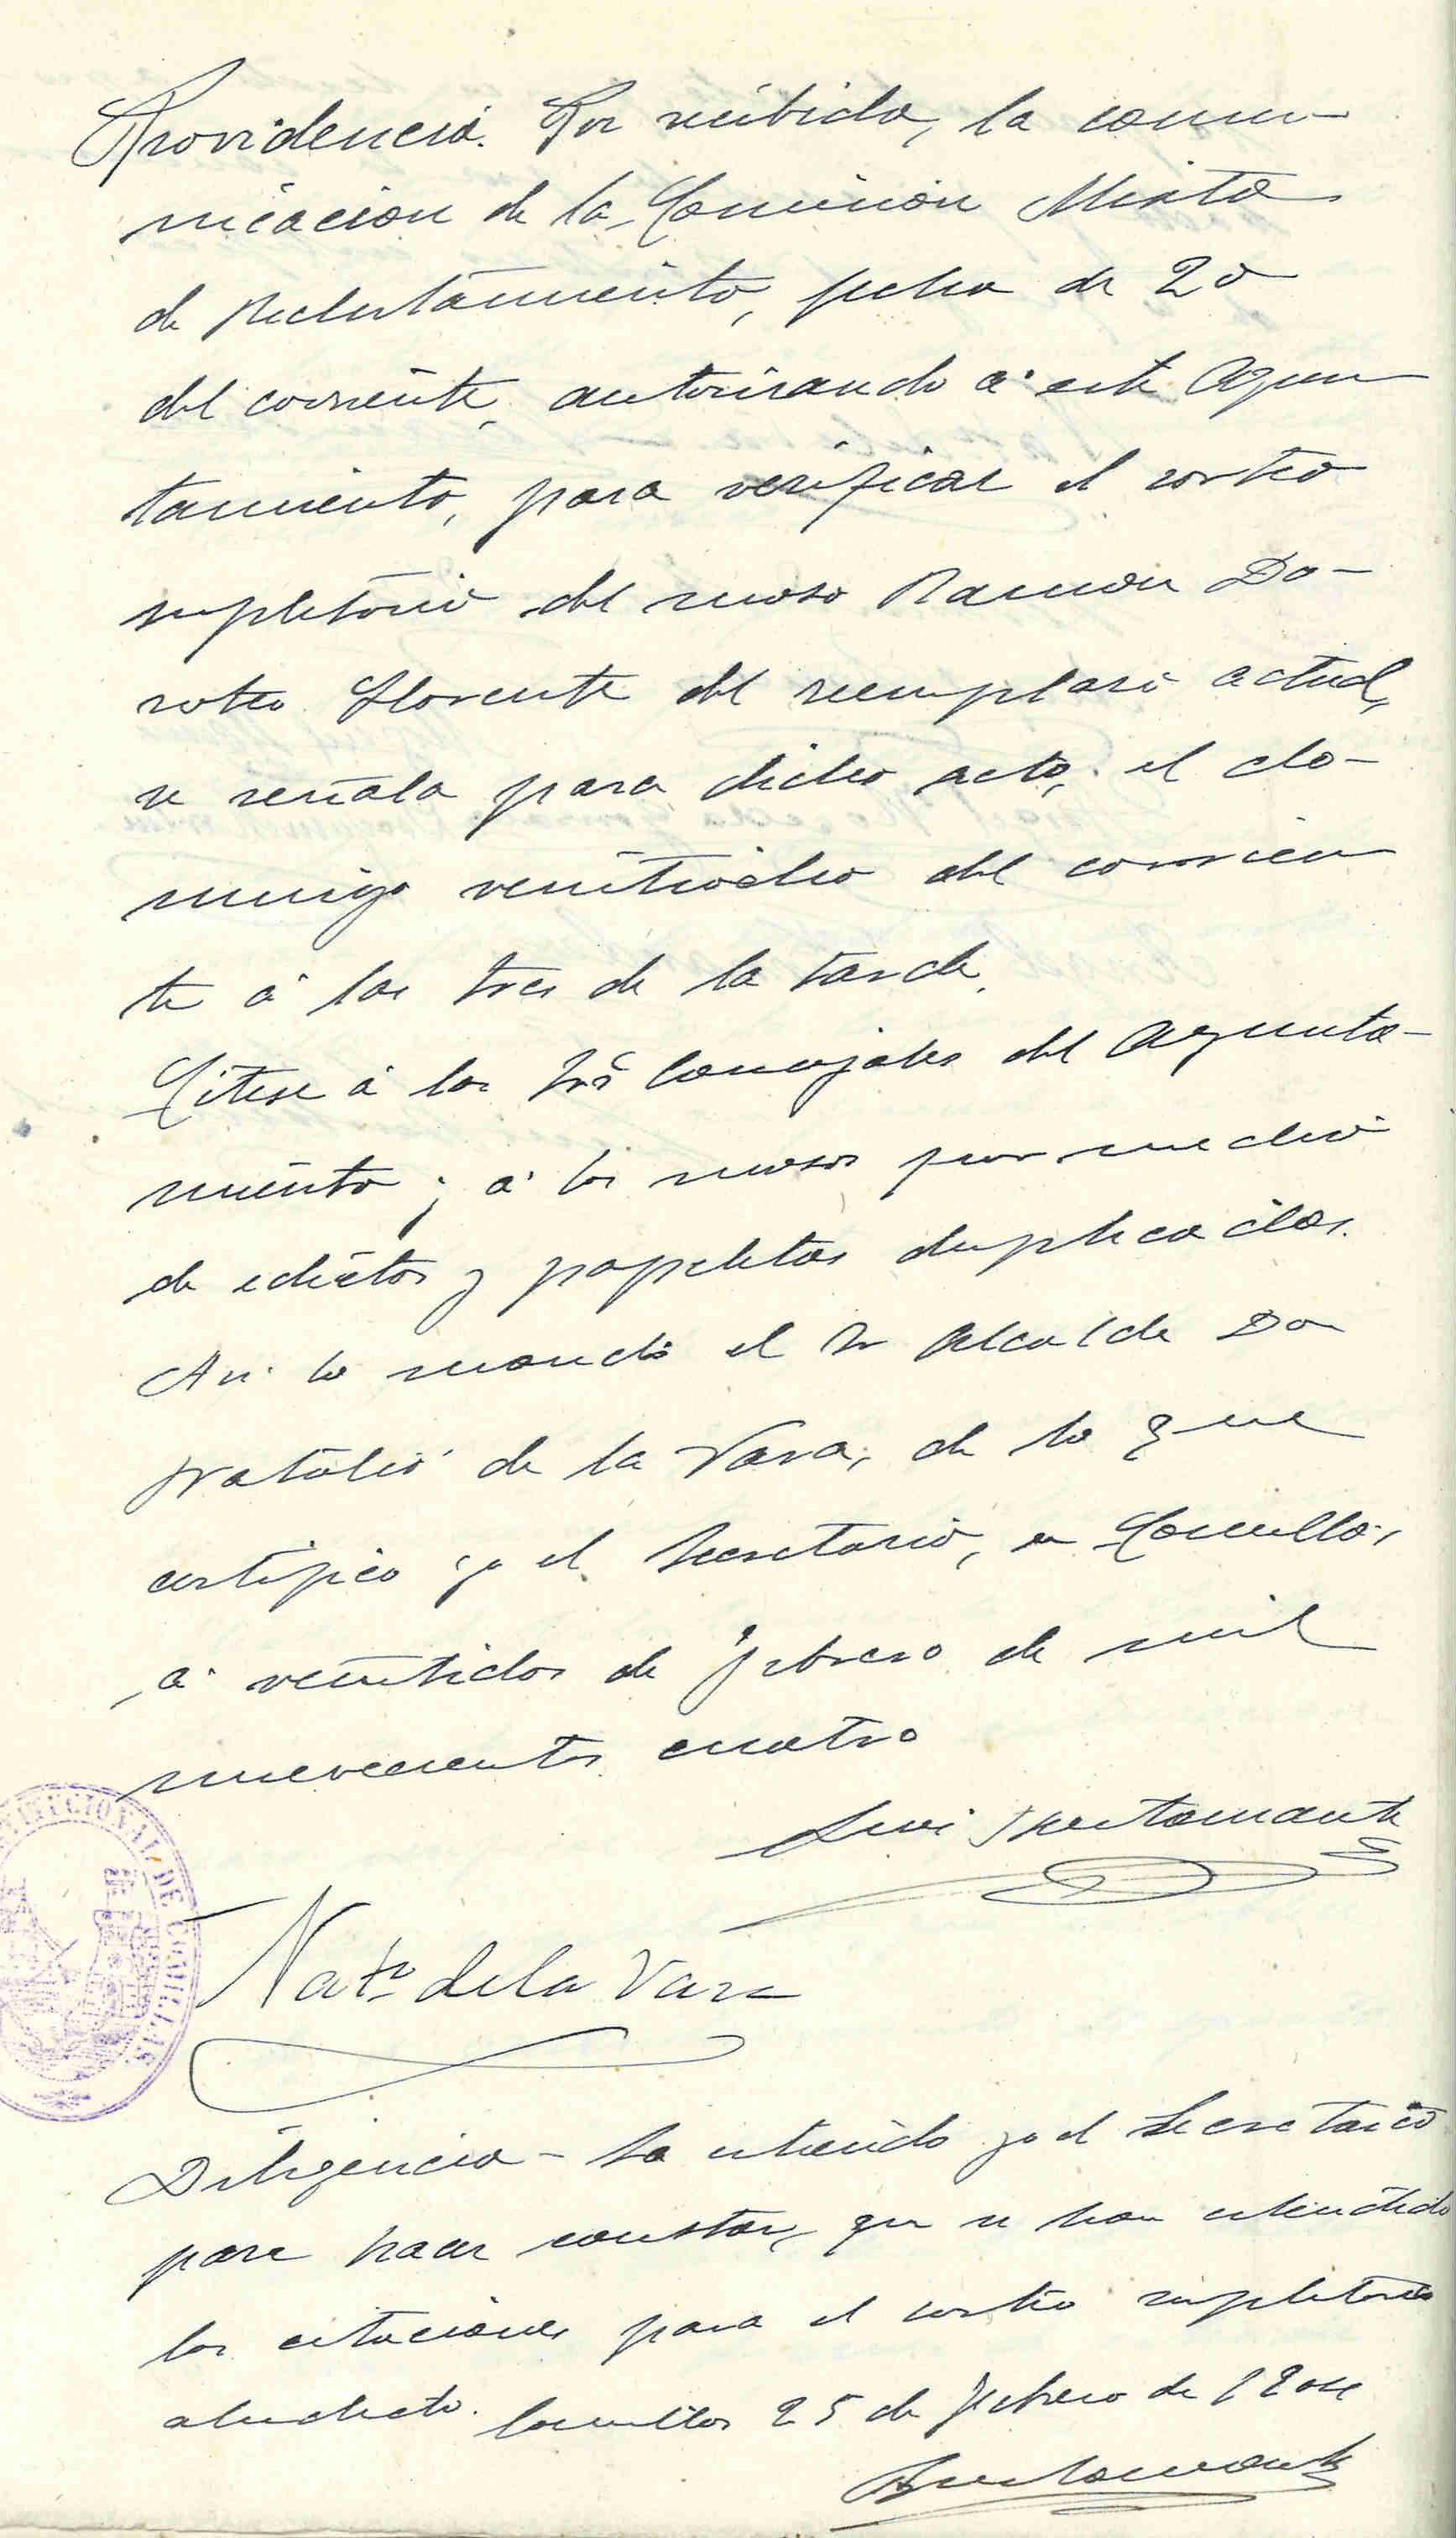 Providencia. Por recibida, la comu-
nicacion de la Comision Mixta
de Reclutamiento, fecha de 20
del corriente, autorizando á este Ayun
tamiento, para verificar el sorteo
supletorio del moso Ramon Do-
roteo Llorente del reemplaso actual,
se señala para dicho acto, el do-
mingo veintiocho del corrien
te á las tres de la tarde.
Citese á los Srs Concejales del Ayunta-
miento; á los mosos por medio
de edictos y papeletas duplicadas.
Asi lo mandó el Sr Alcalde Don
Natalio de la Vara, de lo que
certifico yo el Secretario, en Comillas,
á veintidos de febrero de mil
novecientos cuatro
Luis
Nat.º de la Vara
CONSTITUCIONAL DE COMILLAS
Diligencia - La extiendo yo el Secretario
para hacer constar, que se han extendido
las citaciones para el sorteo supletorio
aludido. Comillas 25 de febrero de 1904